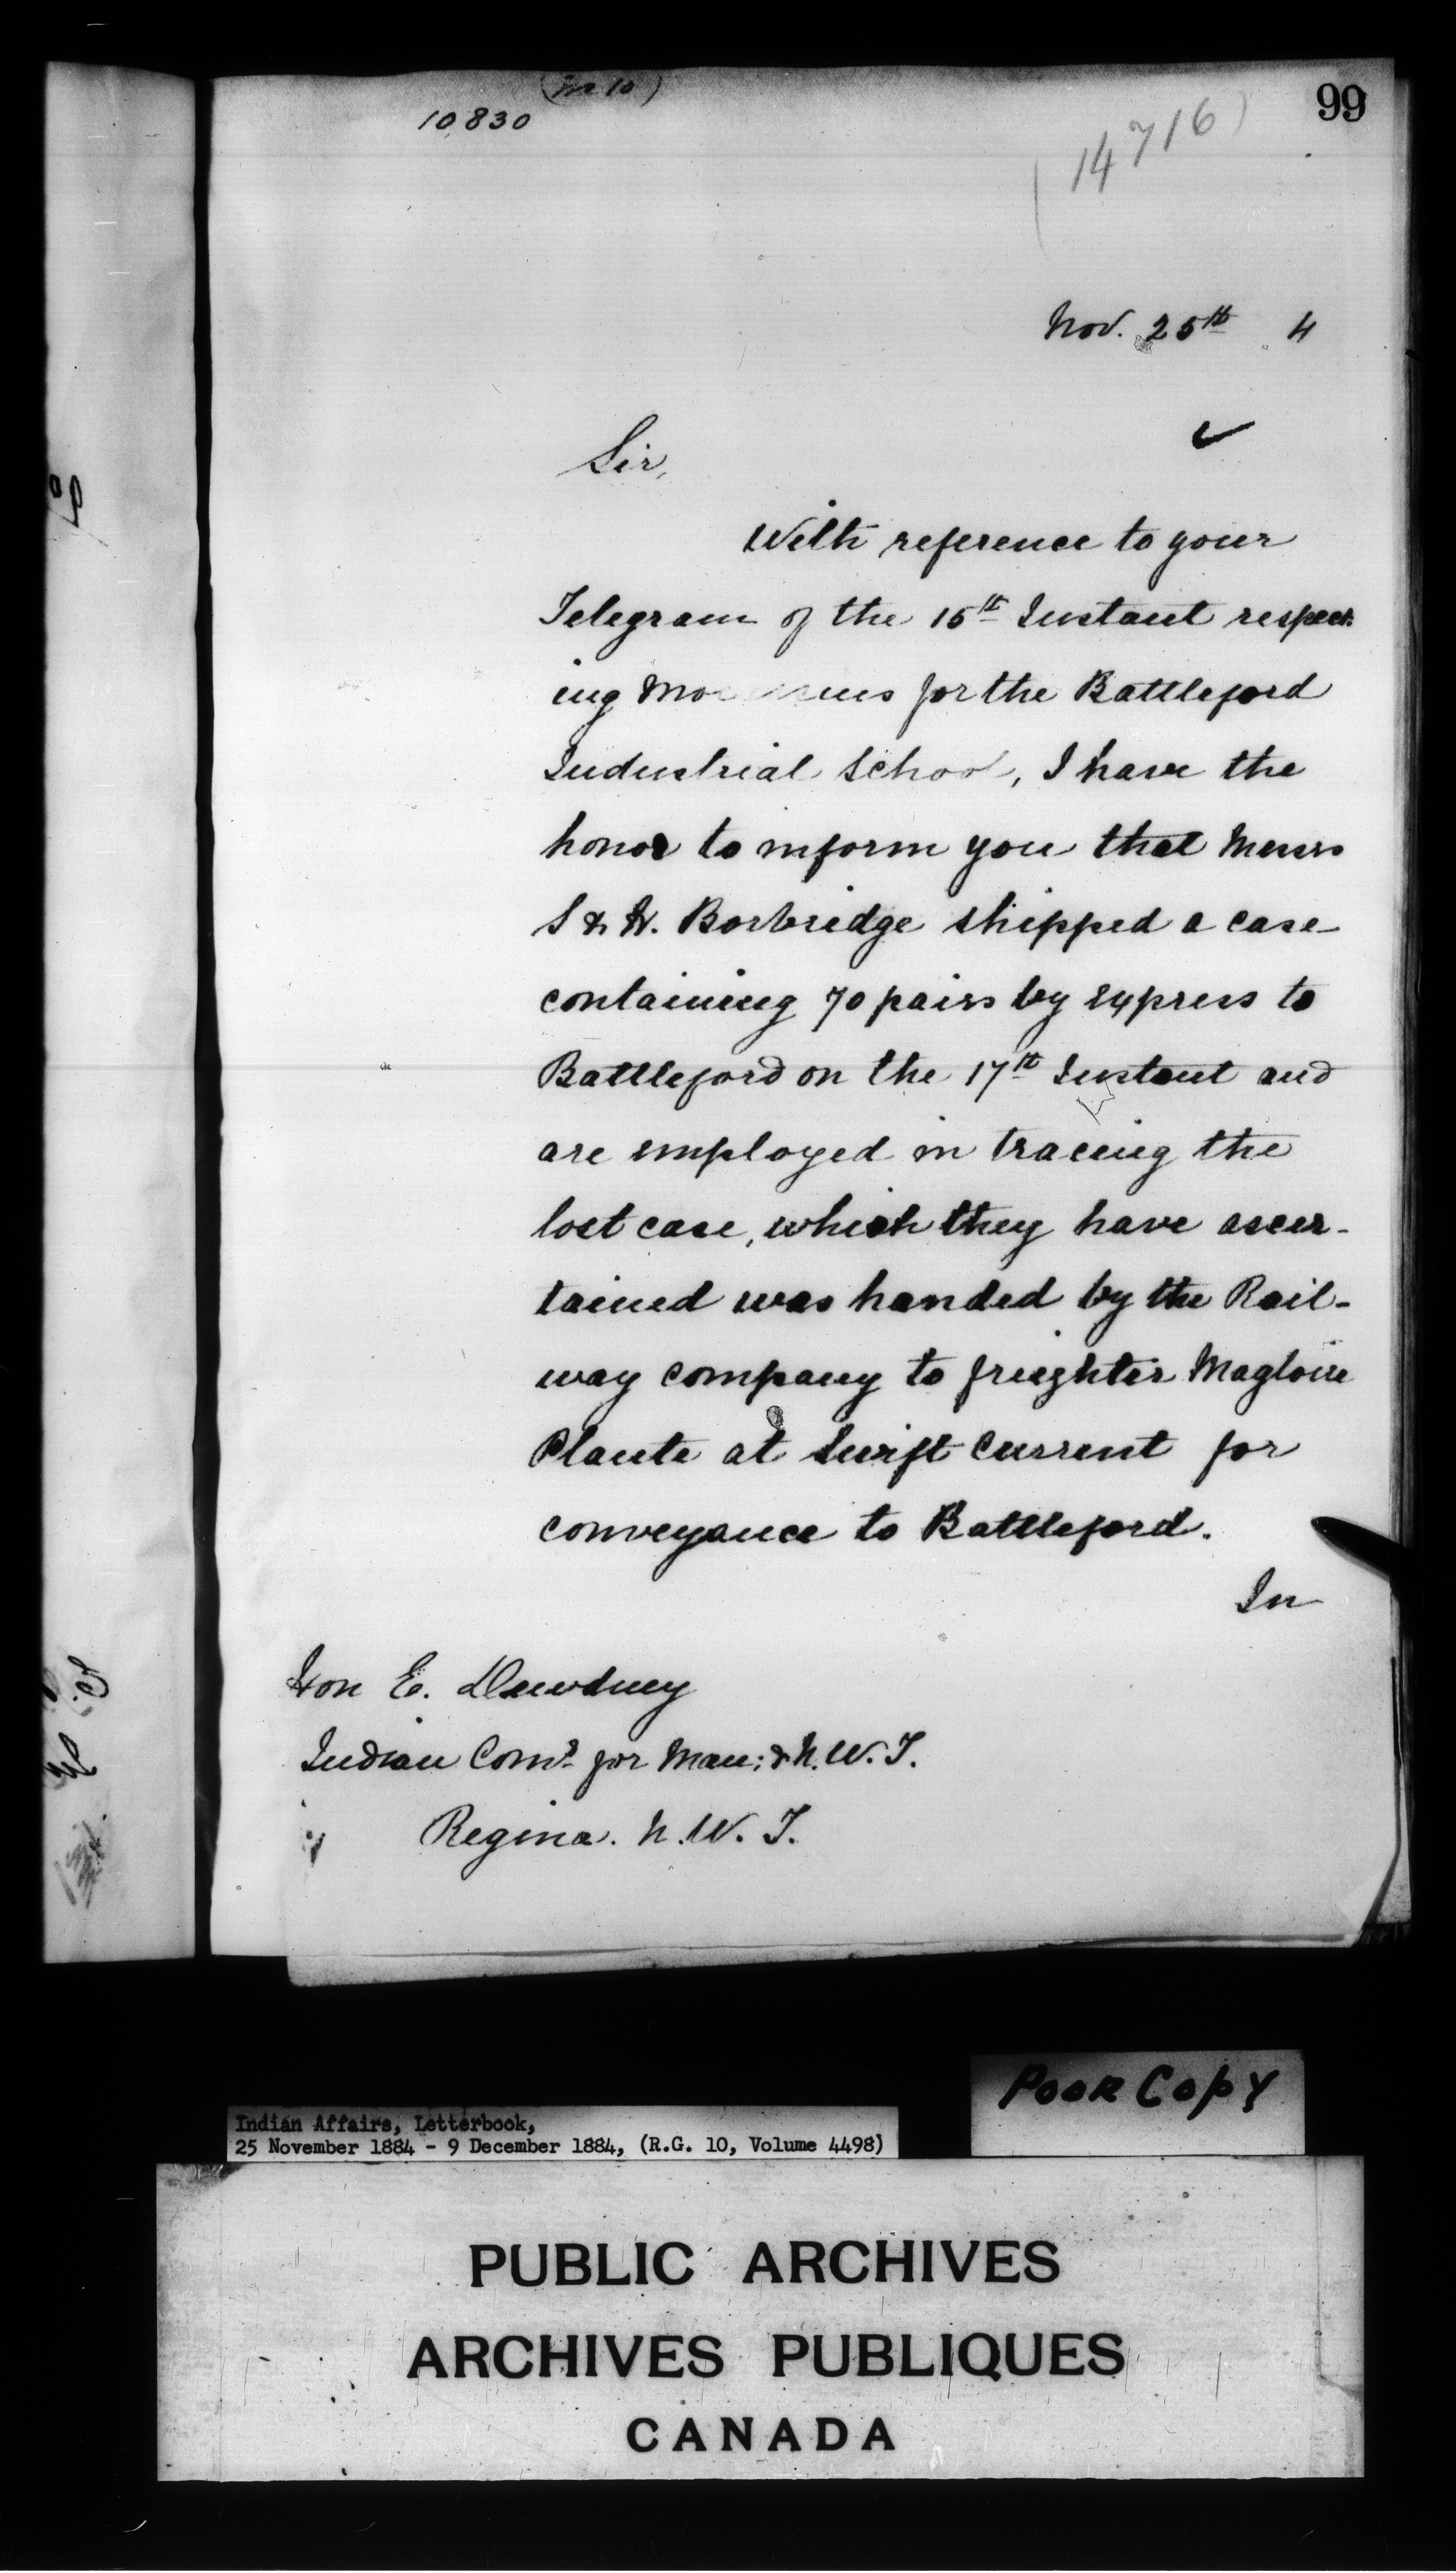 10830
99
14716)
Nov. 25th 4
Sir,
With reference to your
Telegram of the 15th Instant respect
ing for the Battleford
Industrial School, I have the
honor to inform you that Messrs
S & H. Borbridge shipped a case
containing 70 pairs by express to
Battleford on the 17th Instant and
are employed in tracing the
lost case, which they have ascer-
tained was handed by the Rail-
way company to freighter Magloire
Plante at Swift Current for
conveyance to Battleford.
In
Hon E. Dewdney
Indian Comr for Man: & N.W.T.
Regina. N.W.T.
Poor Copy
Indian Affairs, Letterbook,
25 November 1884 - 9 December 1884, (R.G. 10, Volume 4498)
PUBLIC ARCHIVES
ARCHIVES PUBLIQUES
CANADA